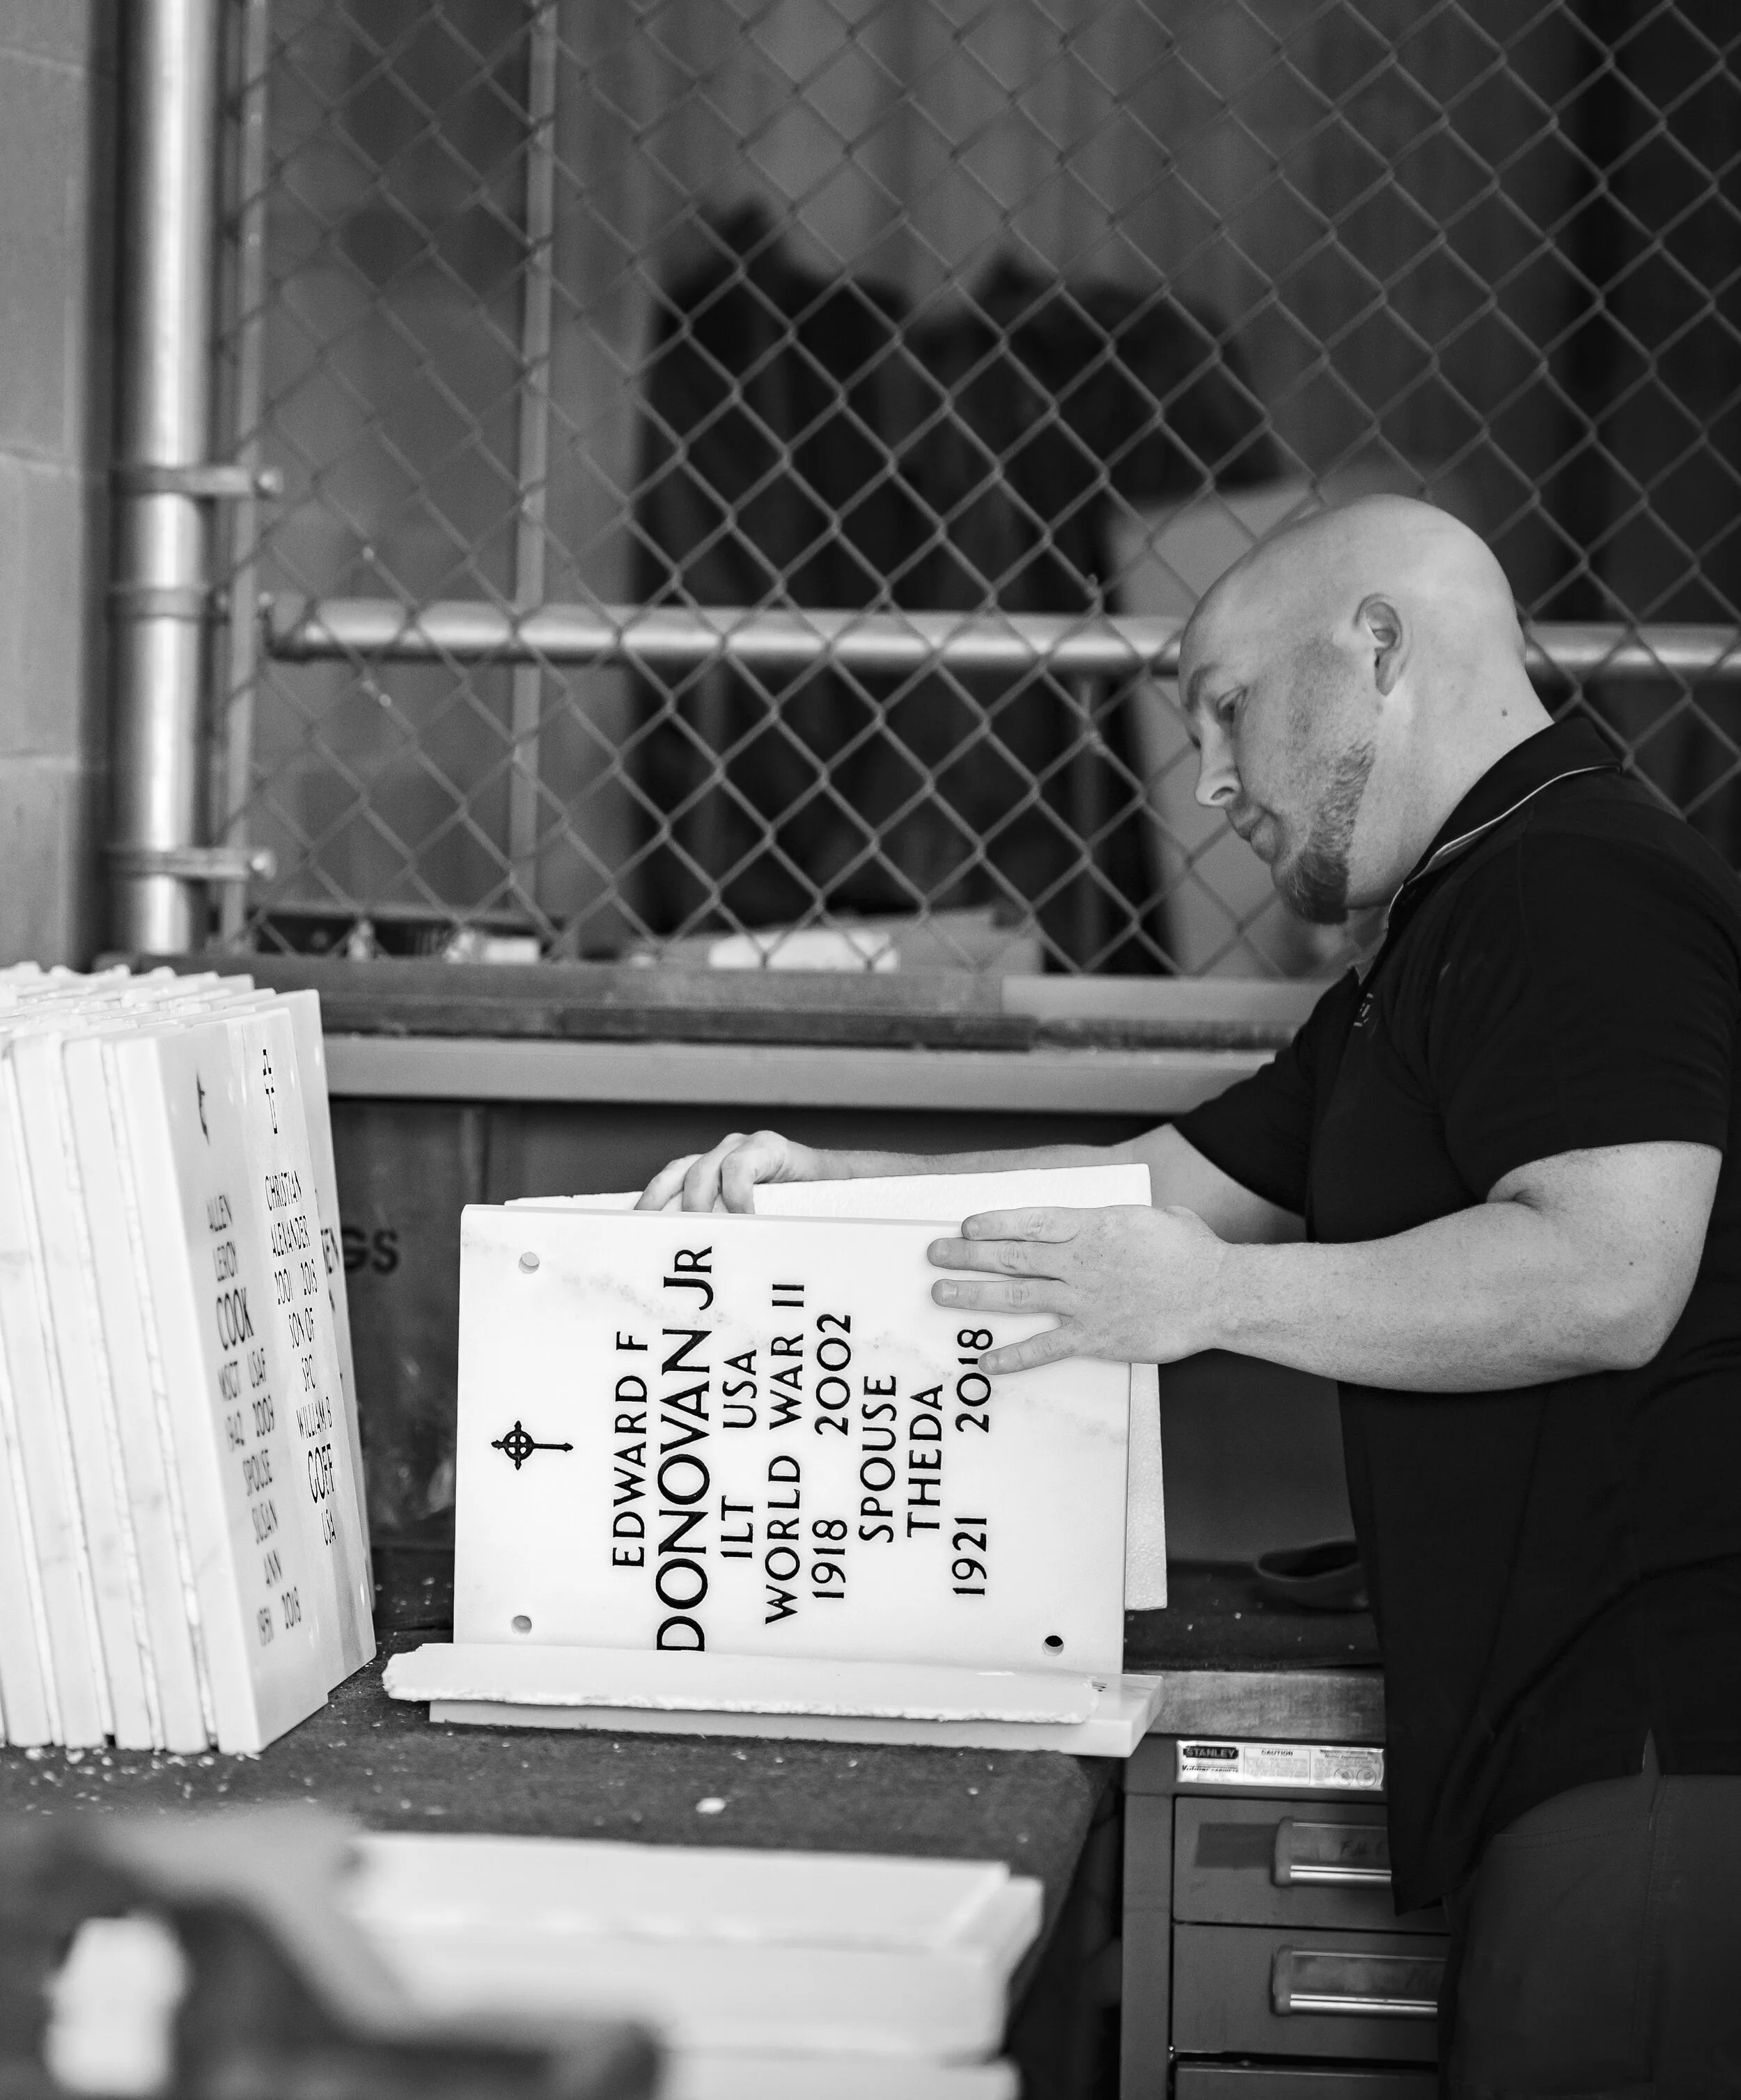 EDWARD F
DONOVAN JR
1LT USA
WORLD WAR II
1918 2002
SPOUSE
THEDA
1921 2018
ALLEN
LEROY
COOK
MSGT USAF
1942 2009
SPOUSE
SUSAN
ANN
2018
CHRISTIAN
ALEXANDER
2001 2015
SON OF
SPC
WILLIAM S
GOFF
USA
GS
STANLEY
CAUTION